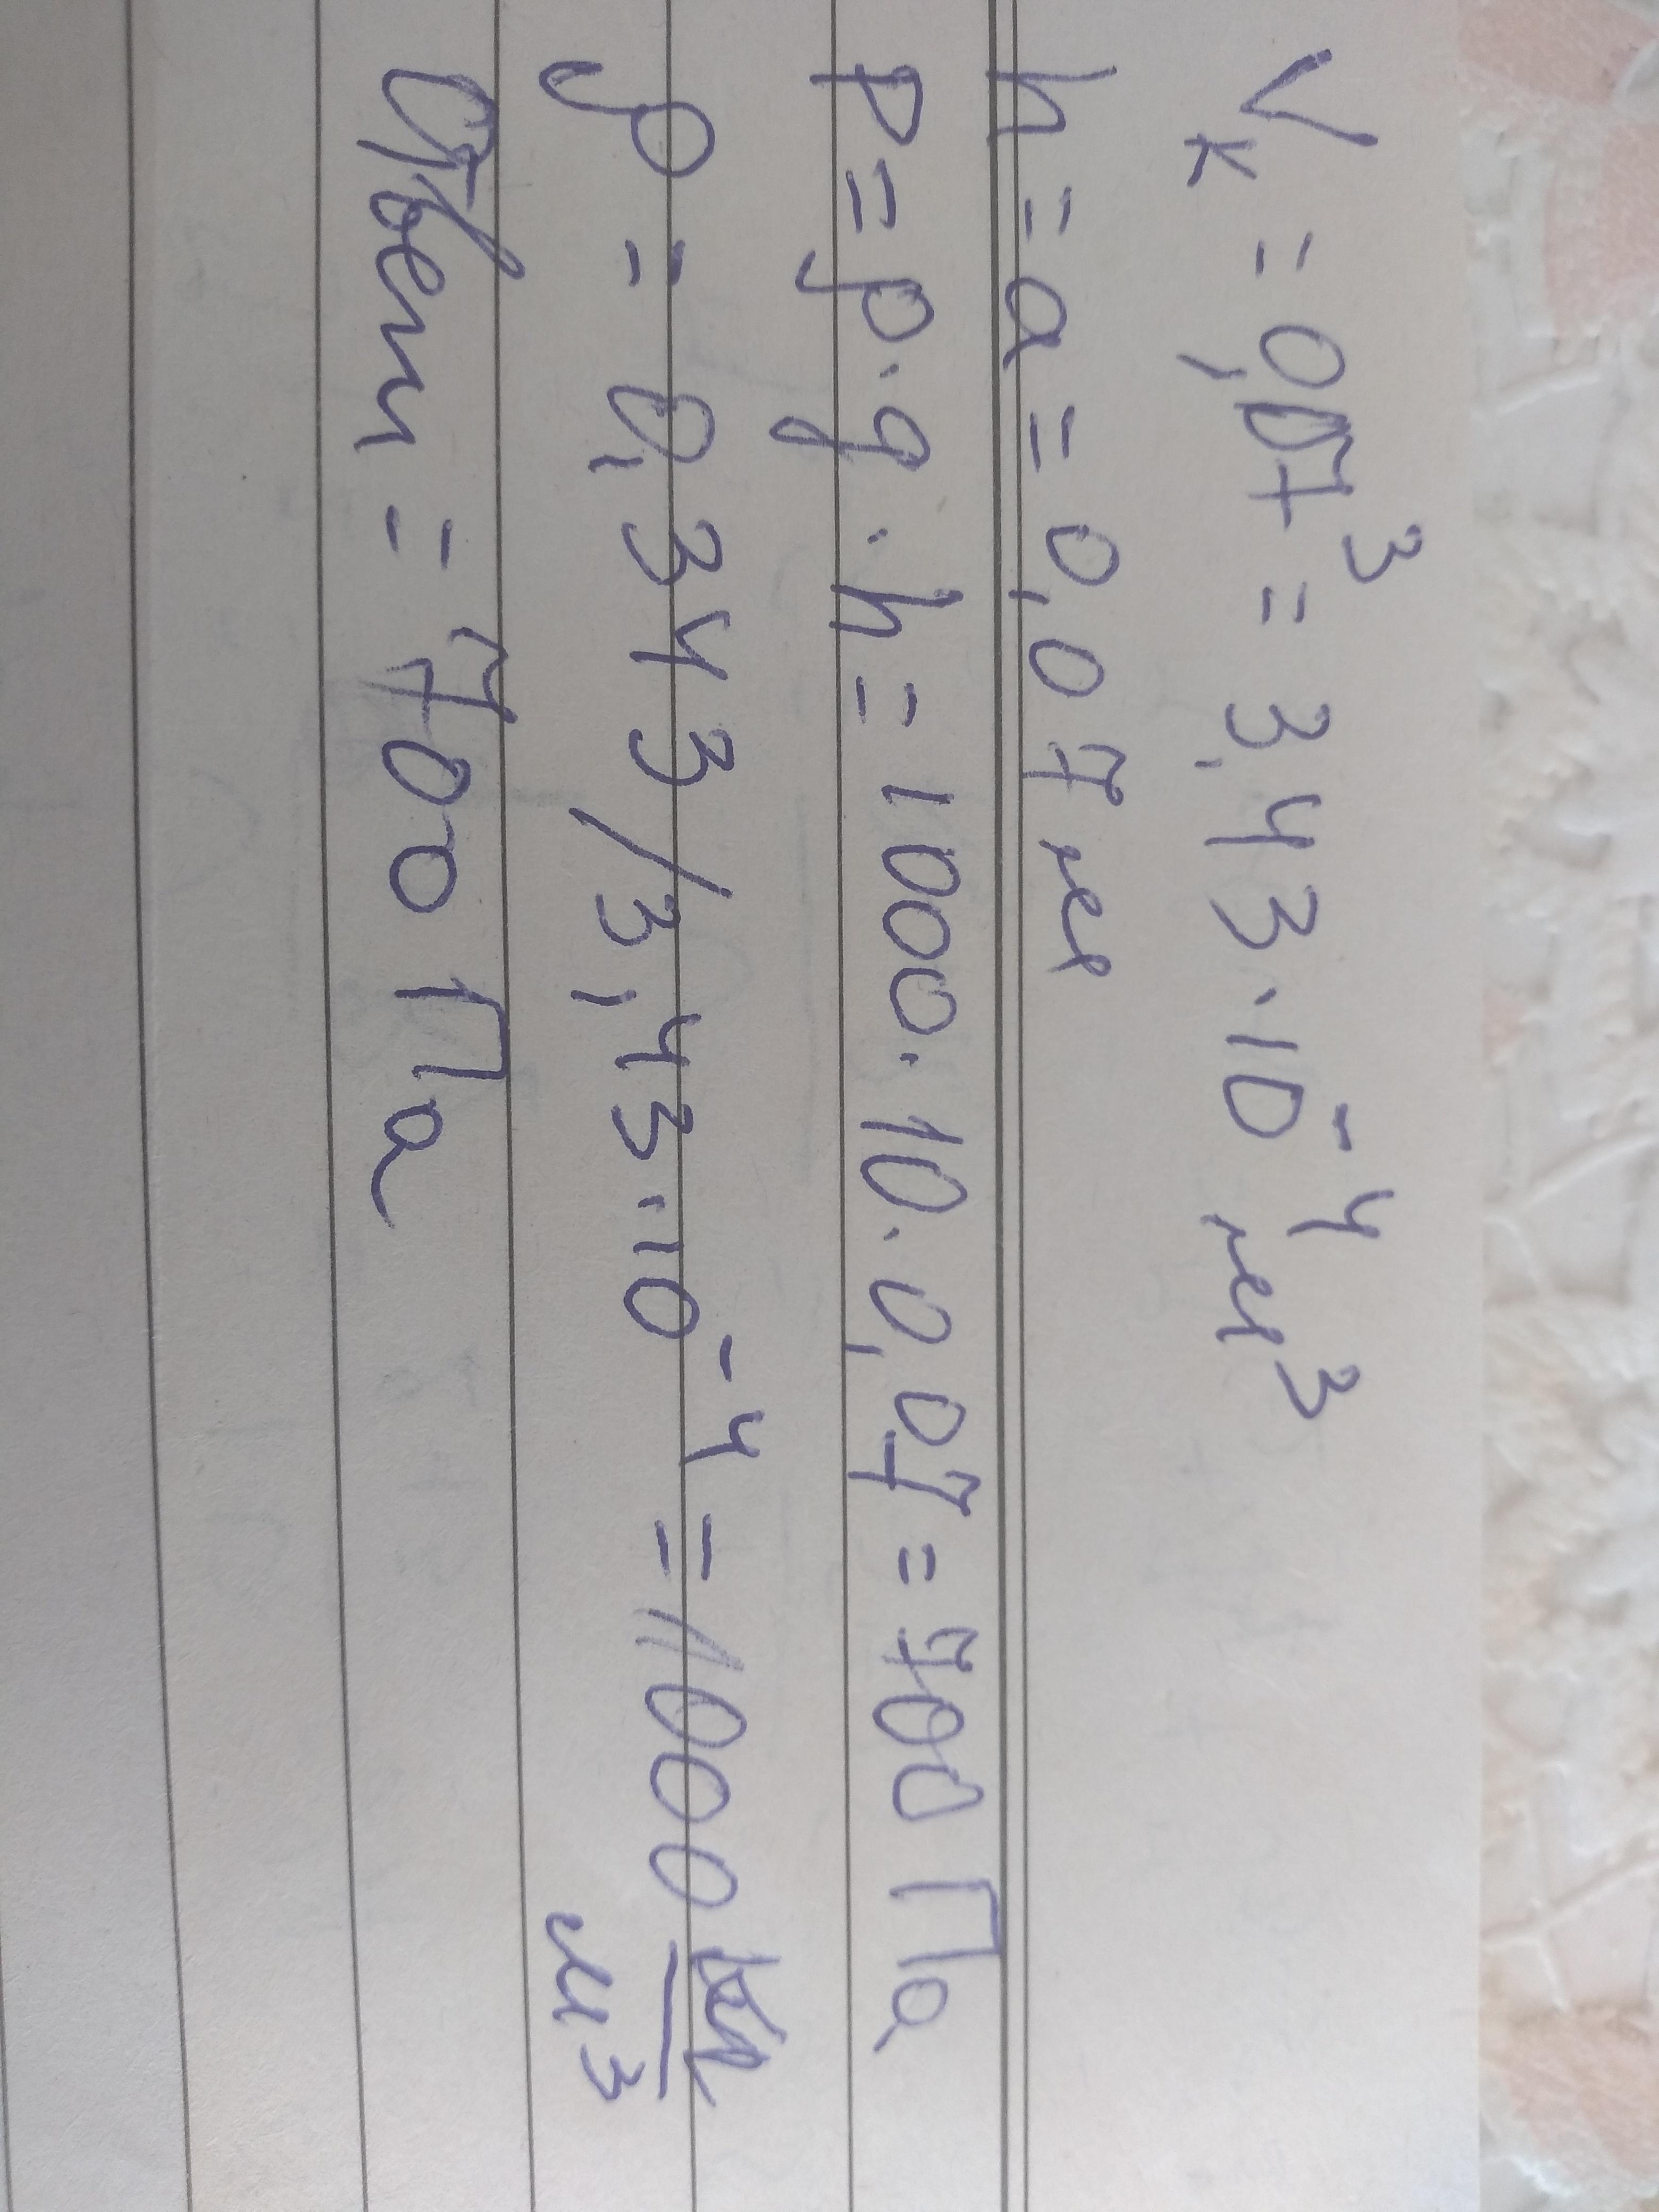 Vк = 0,07³ = 3,43·10⁻⁴ м³
h = a = 0,07 м
P = ρ·g·h = 1000·10·0,07 = 700 Па
ρ = 0,343/3,43·10⁻⁴ = 1000 кг/м³
Ответ = 700 Па